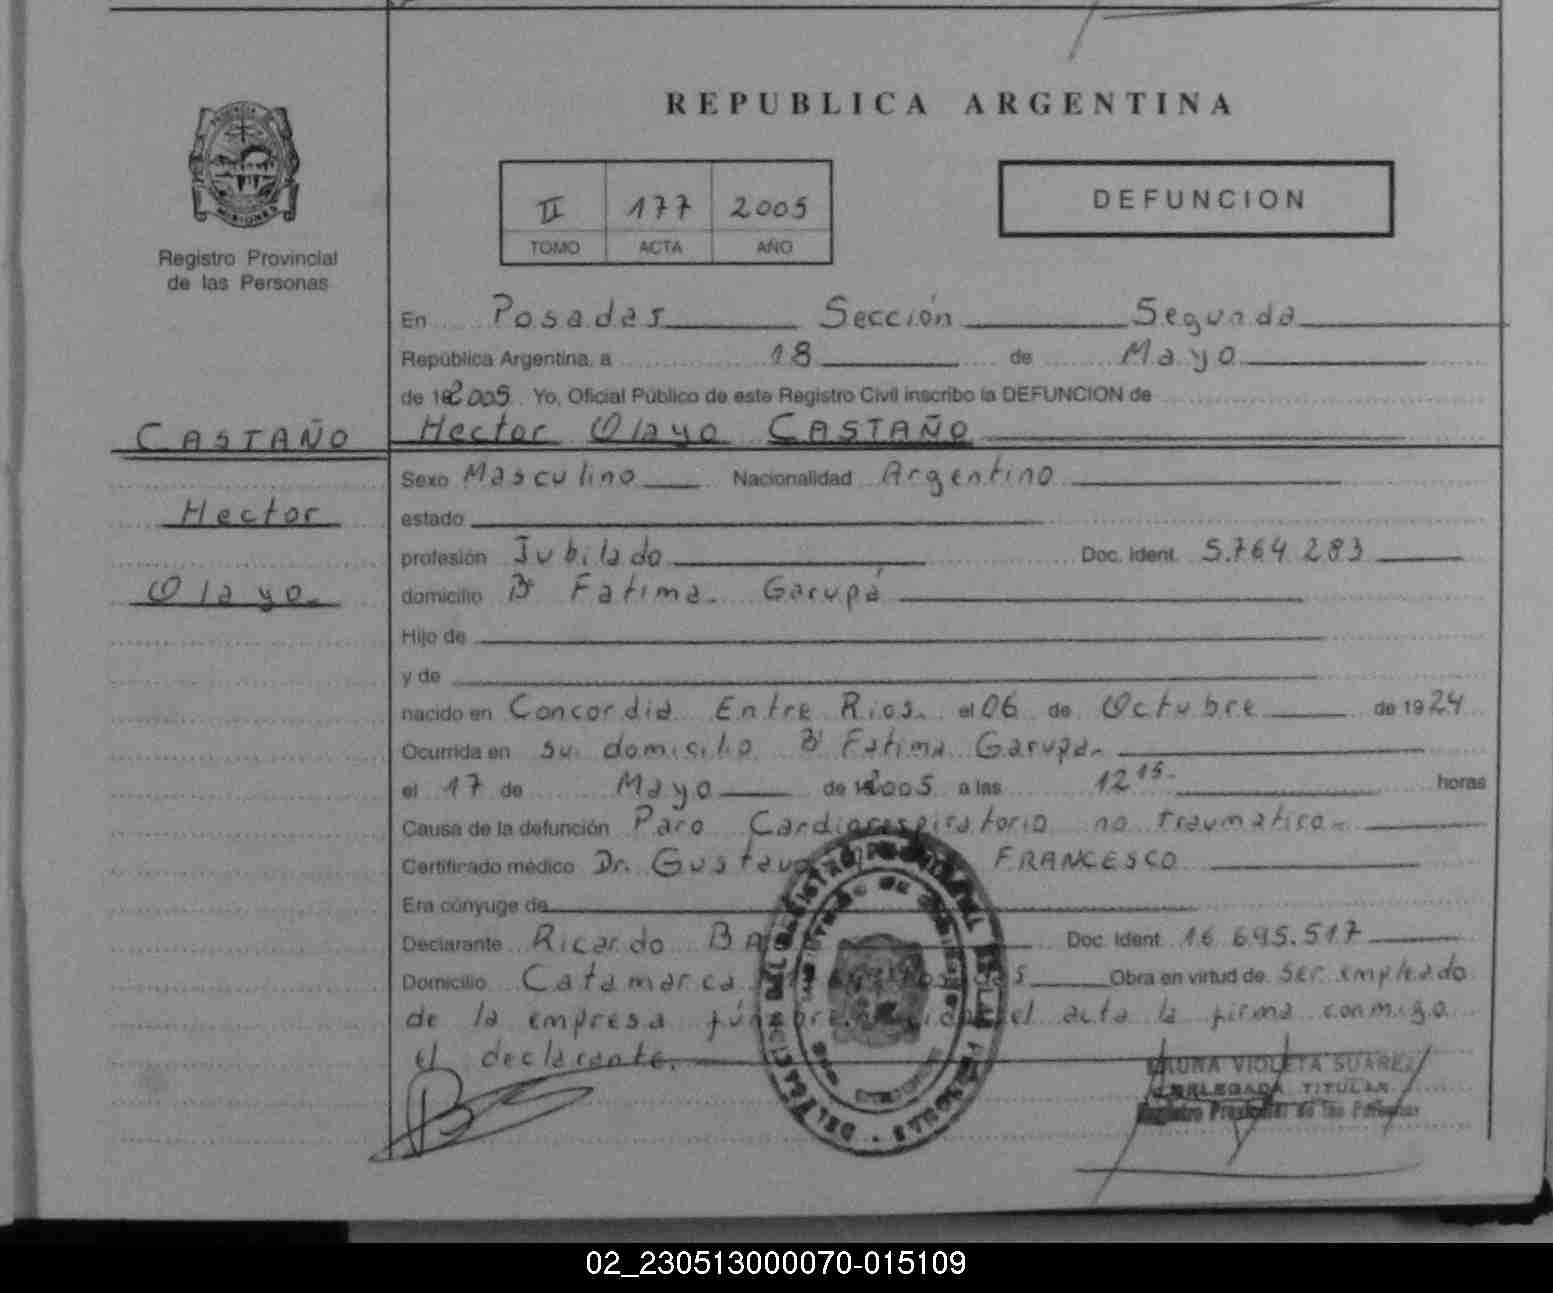 REPUBLICA ARGENTINA
II 177 2005
TOMO ACTA AÑO
DEFUNCION
Registro Provincial
de las Personas
En Posadas Sección Segunda
República Argentina, a 18 de Mayo
de 2005 Yo, Oficial Público de este Registro Civil inscribo la DEFUNCION de
CASTAÑO
Hector
Olayo
Hector Olayo CASTAÑO
Sexo Masculino Nacionalidad Argentino
estado
profesión Jubilado Doc. Ident. 5.764.283
domicilio Bº Fatima. Garupá
Hijo de
y de
nacido en Concordia Entre Rios. el 06 de Octubre de 1924
Ocurrida en su domicilio Bº Fatima Garupa.
el 17 de Mayo de 2005 a las 12 15. horas
Causa de la defunción Paro Cardiorespiratorio no traumatico.
Certificado médico Dr. Gustavo FRANCESCO
Era cónyuge de
Declarante Ricardo Doc. Ident. 16.695.517
Domicilio Catamarca Obra en virtud de ser empleado
de la empresa el acta la firma conmigo
el declarante.
LAURA VIOLETA SUAREZ
DELEGADA TITULAR
Registro Provincial de las Personas
02_230513000070-015109